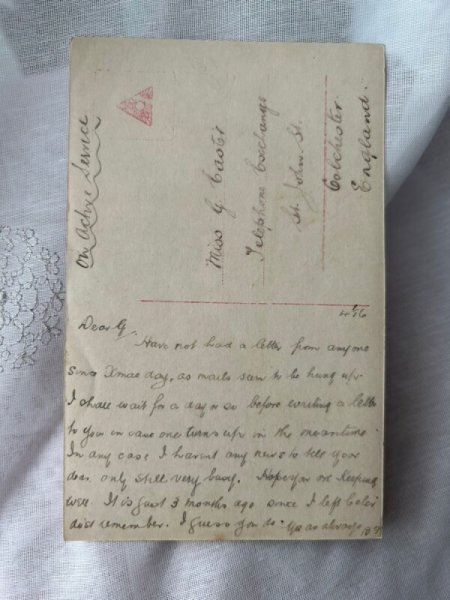 On Active Service
Miss G. Easter
Telephone Exchange
St. John St.
Colchester.
England.
Dear G.
Have not had a letter from anyone
since Xmas day, as mails seem to be hung up.
I shall wait for a day or so before writing a letter
to you in case one turns up in the meantime.
In any case I havent any news to tell you
dear only still very busy. Hope you are keeping
well. It is just 3 months ago since I left Colch
dust remember. I guess you do. Yrs as always